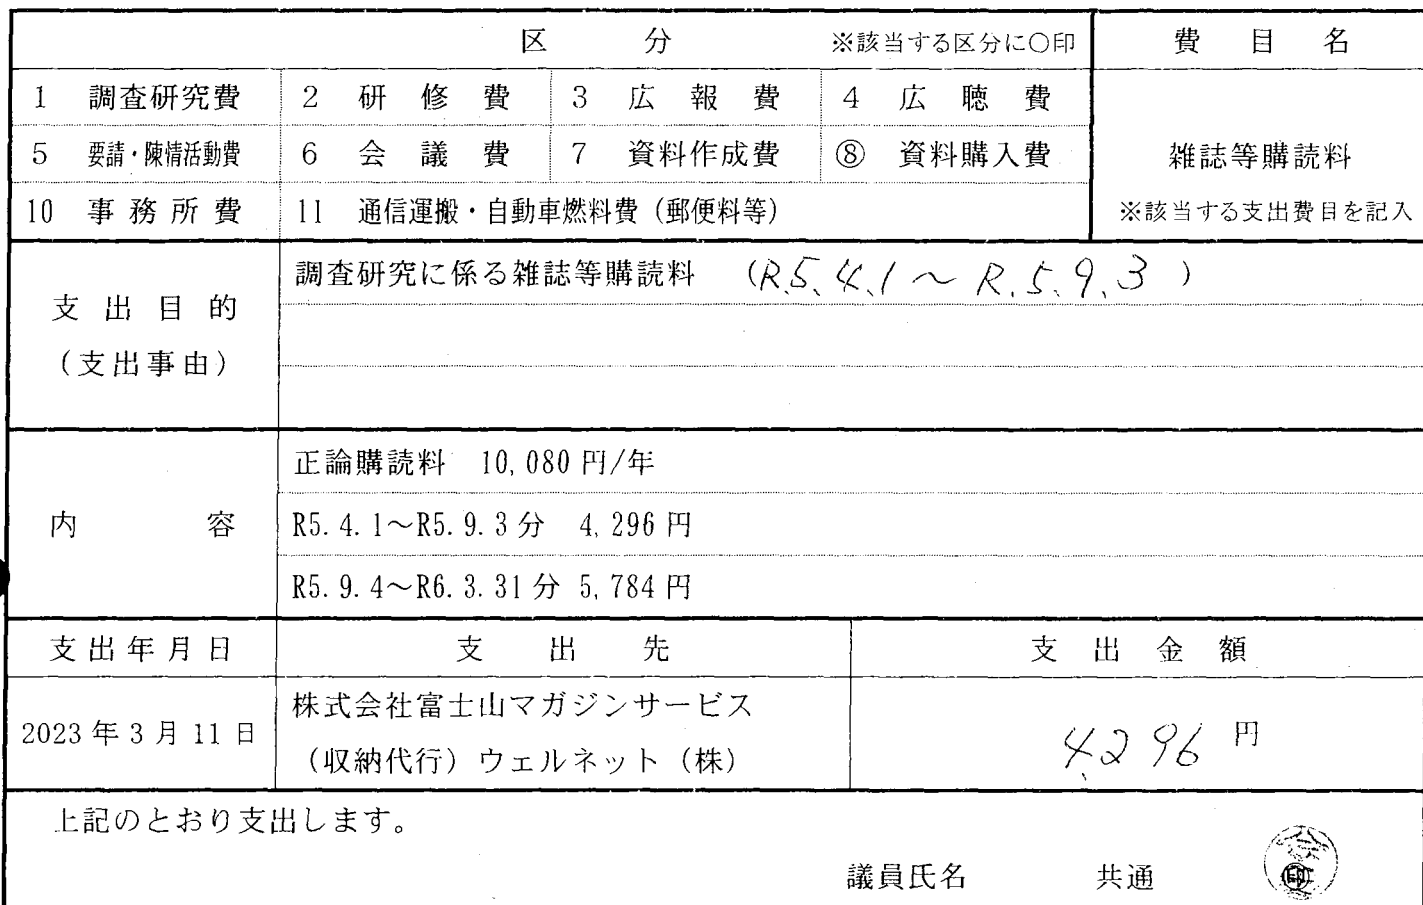 区 分 ※該当する区分に○印 費 目 名
1 調査研究費 2 研 修 費 3 広 報 費 4 広 聴 費
5 要請・陳情活動費 6 会 議 費 7 資料作成費 ⑧ 資料購入費 雑誌等購読料
10 事 務 所 費 11 通信運搬・自動車燃料費（郵便料等） ※該当する支出費目を記入
調査研究に係る雑誌等購読料 （R.5.4.1～R.5.9.3）
支 出 目 的
（支出事由）
正論購読料 10,080円/年
内 容 R5.4.1～R5.9.3分 4,296円
R5.9.4～R6.3.31分 5,784円
支出年月日 支 出 先 支 出 金 額
2023年3月11日 株式会社富士山マガジンサービス
（収納代行）ウェルネット（株） 4,296 円
上記のとおり支出します。
議員氏名 共通 ㊞